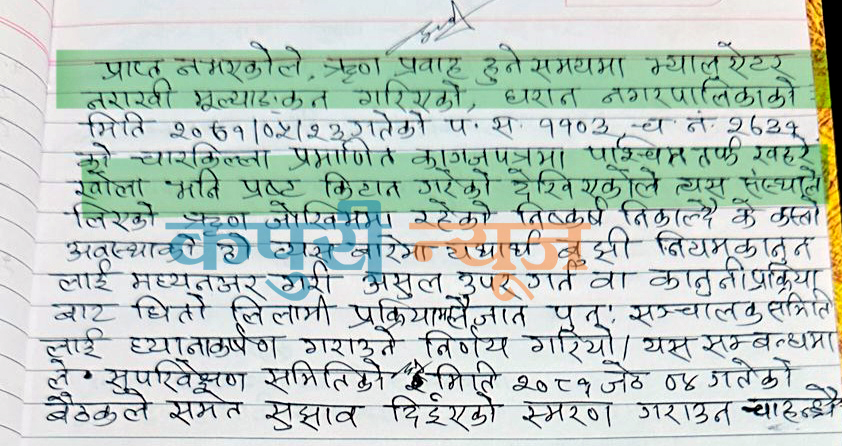 प्राप्त नभएकोले, ऋण प्रवाह हुने समयमा भ्यालुएटर
नराखी मूल्याङ्कन गरिएको, धरान नगरपालिकाको
मिति २०७१।०५।२३ गतेको प. स. ११०३, च. नं. २६३१
को चारकिल्ला प्रमाणित कागजपत्रमा पश्चिम तर्फ खहरे
खोला भनि प्रष्ट किटान गरेको देखिएकोले त्यस संस्थाले
लिएको ऋण जोखिममा रहेको निष्कर्ष निकाल्दै के कस्तो
अवस्थाको हो त्यस बारेमा यथार्थ बुझी नियमकानुन
लाई मध्यनजर गरी असुल उपर गर्न वा कानुनी प्रक्रिया
बाट धितो लिलामी प्रक्रियामा लैजान पुन: सञ्चालक समिति
लाई ध्यानाकर्षण गराउने निर्णय गरियो। यस सम्बन्धमा
ले. सुपरिवेक्षण समितिको मिति २०८१ जेठ ०४ गतेको
बैठकले समेत सुझाव दिईएको स्मरण गराउन चाहन्छौ
कपुरी न्यूज